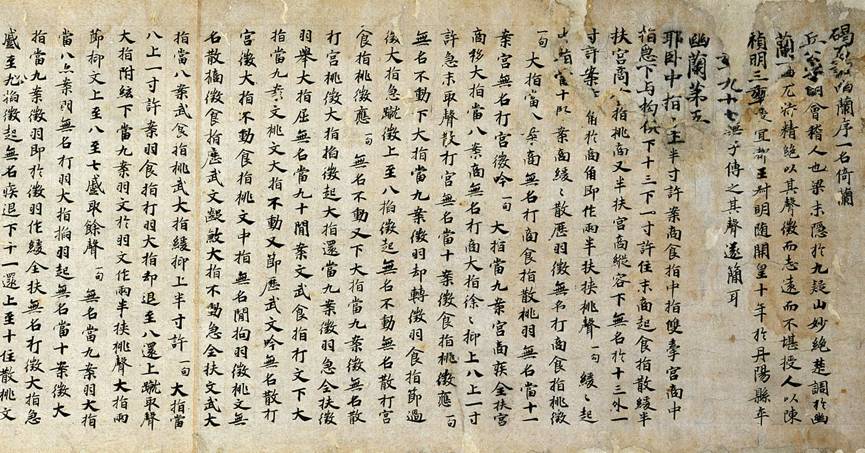 碣石調幽蘭序一名倚蘭
丘公字明會稽人也梁末隱於九疑山妙絕楚調於幽
蘭一曲尤特精絕以其聲微而志遠而不堪授人以陳
禎明三年授宜都王叔明隨開皇十年於丹陽縣卒
年九十七無子傳之其聲遂簡耳
幽蘭第五
耶臥中指十上半寸許案商食指中指雙牽宮商中
指急下与拘俱下十三下一寸許住末商起食指散緩半
扶宮商食指挑商又半扶宮商縱容下無名於十三外一
寸許案商角於商角即作兩半扶挾挑聲一句緩〻起
指當十案商緩〻散歷羽徵無名打商食指挑徵
一句大指當八案商無名打商食指散挑羽無名當十一
案宮無名打宮徵吟一句大指當九案宮商疾全扶宮
商移大指當八案商無名打商大指徐〻抑上八上一寸
許急末取聲散打宮無名當十案徵食指挑徵應一句
無名不動下大指當九案徵羽却轉徵羽食指節過
後大指急蹴徵上至八掐徵起無名不動無名散打宮
食指挑徵應一句無名不動又下大指當九案徵無名散
打宮挑徵大指掐徵起大指還當九案徵羽急全扶徵
羽舉大指屈無名當九十間案文武食指打文下大
指當九案文挑文大指不動又節歷武文吟無名散打
宮徵大指不動食指挑文中指無名間拘羽徵挑文無
名散摘徵食指歷武文齪敏大指不動急全扶文武大
指當八案武食指挑武大指緩抑上半寸許一句大指當
八上一寸許案羽食指打羽大指却退至八還上蹴取聲
大指附絃下當九案羽文於羽文作兩半挾挑聲大指兩
節抑文上至八至七蹙取餘聲一句無名當九案羽大指
當八案間無名打羽大指掐羽起無名當十案徵大
指當九案徵羽即於徵羽作緩全扶無名打徵大指急
蹙至九掐徵起無名疾退下十一還上至十住散挑文